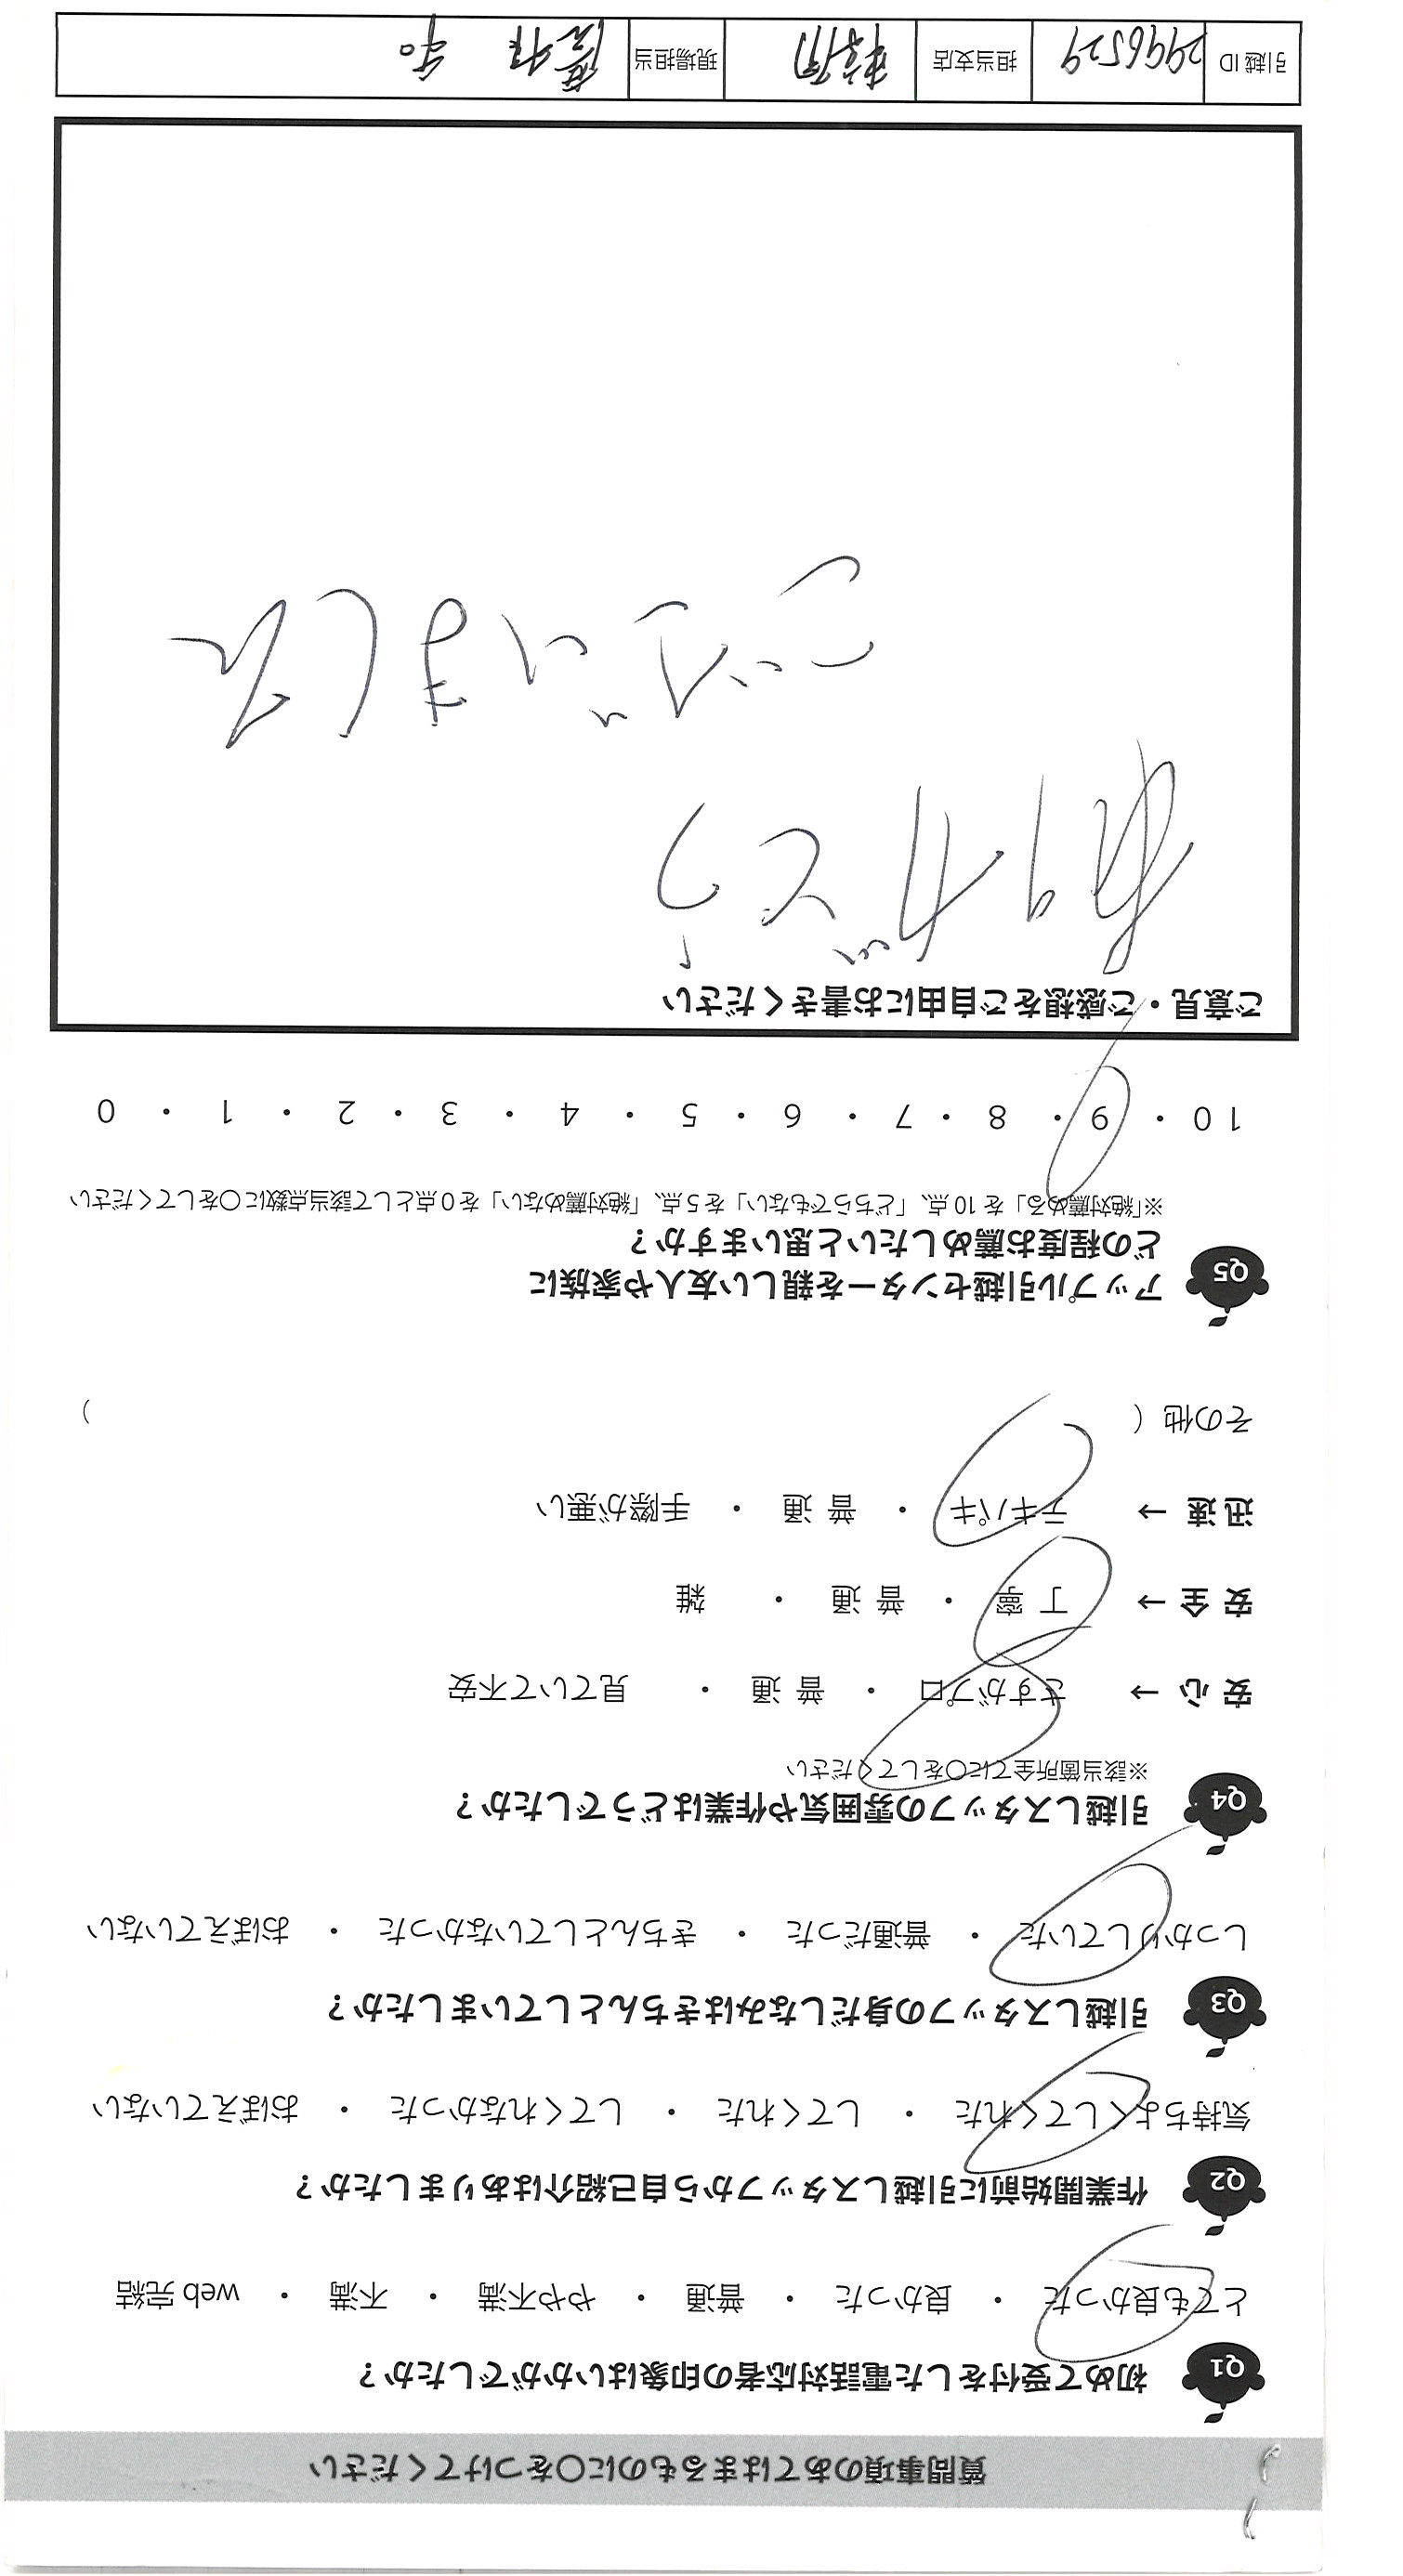 質問事項のあてはまるものに○をつけてください
Q1 初めて受付をした電話対応者の印象はいかがでしたか？
とても良かった ・ 良かった ・ 普通 ・ やや不満 ・ 不満 ・ web 完結
Q2 作業開始前に引越しスタッフから自己紹介はありましたか？
気持ちよくしてくれた ・ してくれた ・ してくれなかった ・ おぼえていない
Q3 引越しスタッフの身だしなみはきちんとしていましたか？
しっかりしていた ・ 普通だった ・ きちんとしていなかった ・ おぼえていない
Q4 引越しスタッフの雰囲気や作業はどうでしたか？
※該当箇所全てに○をしてください
安 心 → さすがプロ ・ 普 通 ・ 見ていて不安
安 全 → 丁 寧 ・ 普 通 ・ 雑
迅 速 → テキパキ ・ 普 通 ・ 手際が悪い
その他 （ ）
Q5 アップル引越センターを親しい友人や家族に
どの程度お薦めしたいと思いますか？
※「絶対薦める」を 10 点、「どちらでもない」を 5 点、「絶対薦めない」を 0 点として該当点数に○をしてください
10 ・ 9 ・ 8 ・ 7 ・ 6 ・ 5 ・ 4 ・ 3 ・ 2 ・ 1 ・ 0
ご意見・ご感想をご自由にお書きください
ありがとう
ございました
引越 ID 2996529 担当支店 現場担当